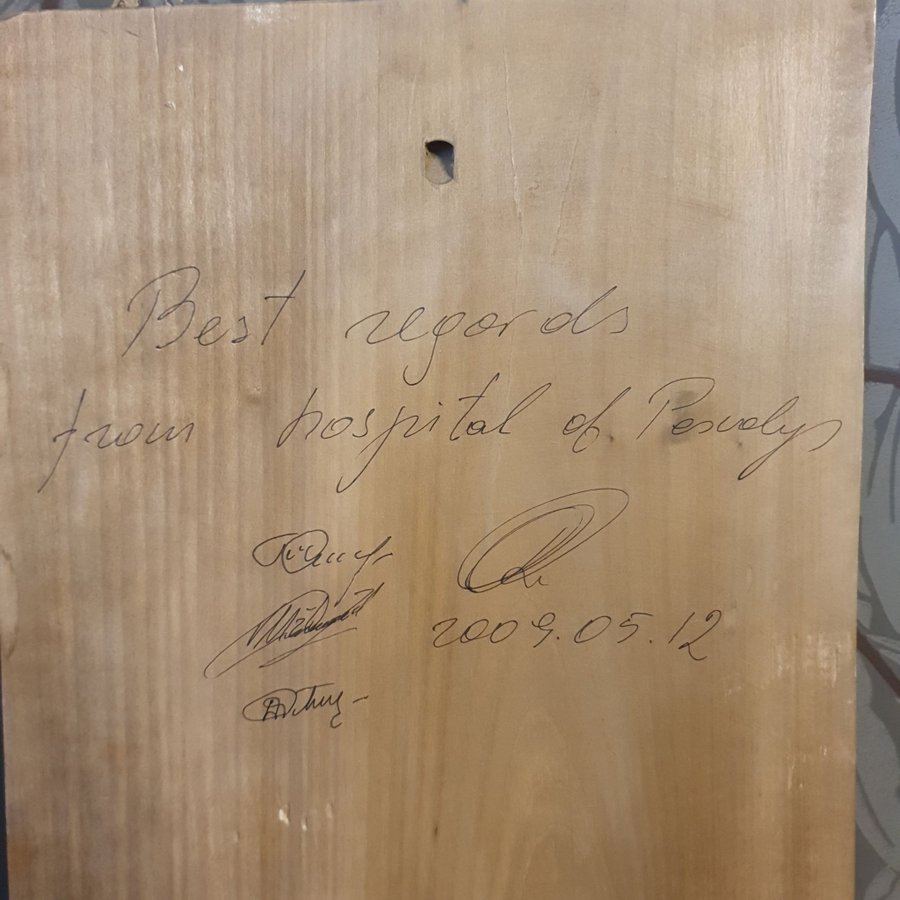 Best regards
from hospital of Pasvalys
2009.05.12